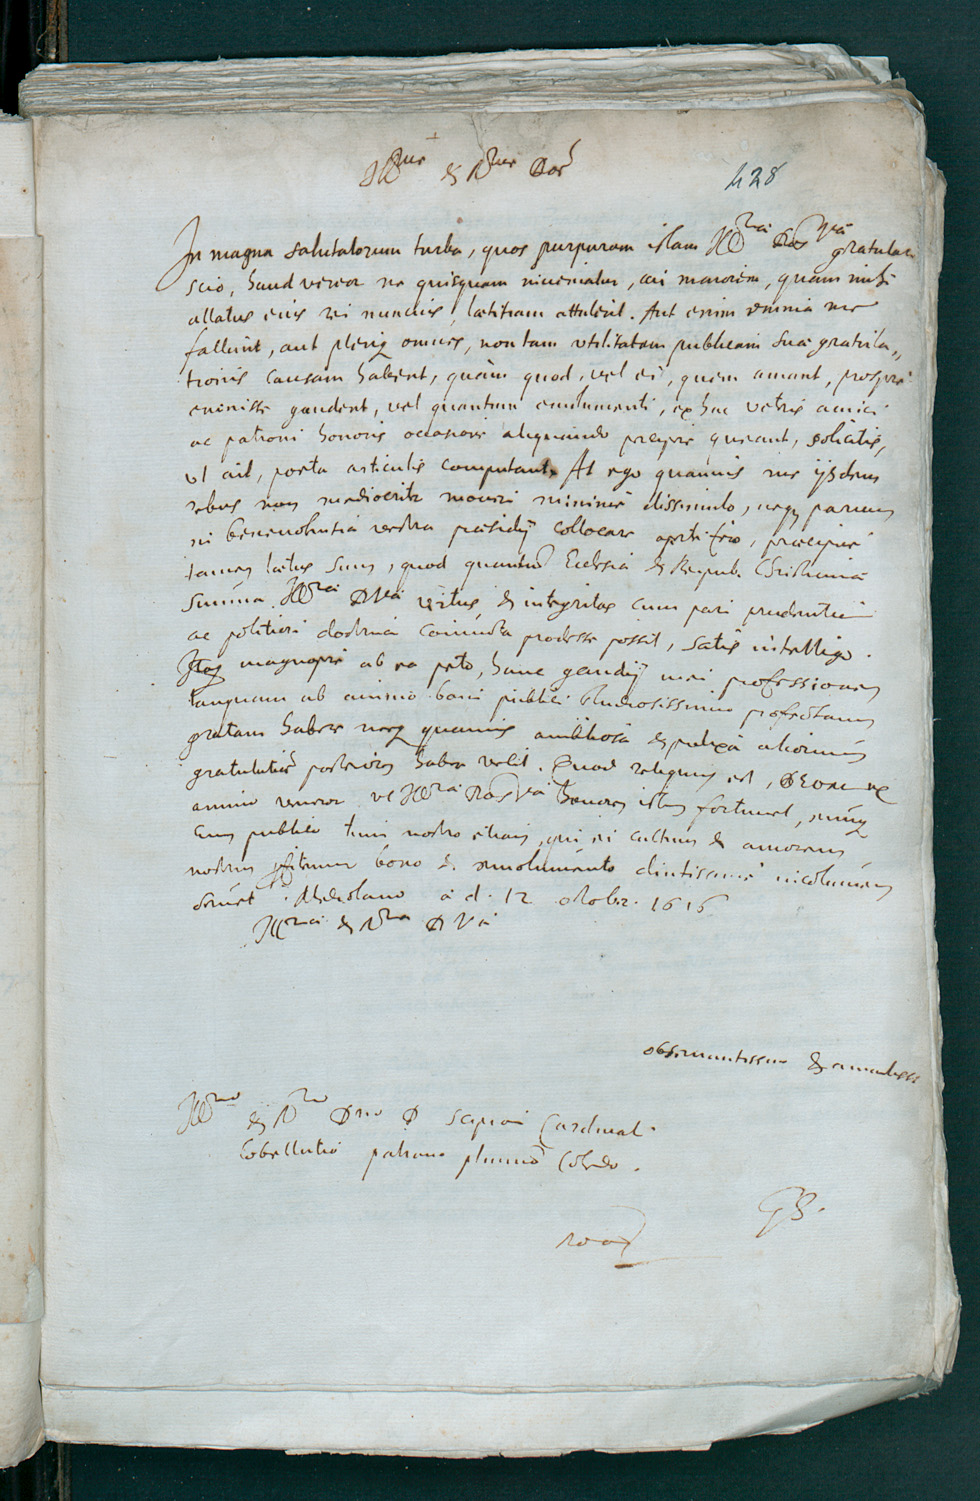 Ill.mе & R.me Dne
428
In magna salutatorum turba, quos purpuram istam Ill.mae D.nis V.rae gratulari
scio, haud vereor ne quisquam inveniatur, cui maiorem, quam mihi
allatus eius rei nuncius, laetitiam attulerit. Aut enim omnia me
fallunt, aut pleriq omnes, non tam utilitatem publicam suae gratula„
tionis causam habent, quàm quod, vel ei, quem amant, prosperè
evenisse gaudent, vel quantum emolumenti, ex hac veteris amici
ac patroni honoris occasione aliquando percipere queant, solicitis,
ut ait, poeta articulis computant. At ego quamvis me ijsdem
rebus non mediocriter moveri minimè dissimulo, neq parum
in benevolentia vestra praesidij collocare aperte fero, praecipuè
tamen laetus sum, quod quantum Ecclesiae & Reipub. Christianae
summa Ill.mae D V.ae virtus & integritas cum pari prudentia
ac politiori doctrina coniuncta prodesse possit, satis intelligo.
Itaq magnoperè ab ea peto, hanc gaudij mei professionem
tanquam ab animo boni publici studiosissimo profectam
gratam habere neq quamvis ambitiosa & prolixa aliorum
gratulatione posteriorem habere velit. Quod reliquum est, DEOM ex
animo veneror ut Ill.mae D.nis V.ae honorem istum fortunet, eumq
cum publico tum nostro etiam, qui ei cultum & amorem
nostrum bono & emolumento diutissimè incolumem
servet. Mediolano a d. 12 octobr. 1616
Ill.mae & R.mae D V.ae
observantissimus &
Ill.mo & R.mo D.no D Scipioni Cardinal.
Cobellutio patrono plurimum colendo.
GB.
Roma